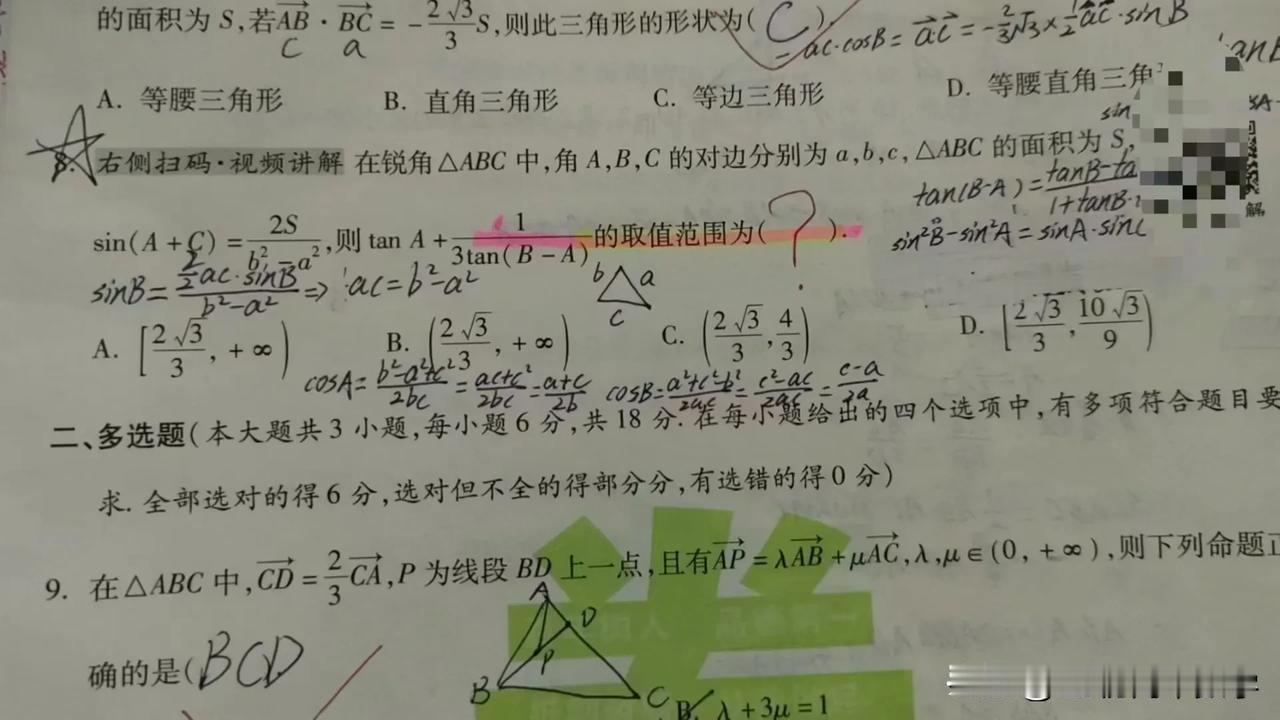 的面积为 S,若$\overrightarrow{AB}$·$\overrightarrow{BC}$ = -$\frac{2\sqrt{3}}{3}$S,则此三角形的形状为( C ).
c a
-ac·cosB = $\vec{ac}$ = -$\frac{2}{3}$√3×$\frac{1}{2}$ac·sinB
A. 等腰三角形 B. 直角三角形 C. 等边三角形 D. 等腰直角三角
sin
8. 右侧扫码·视频讲解 在锐角△ABC 中,角 A,B,C 的对边分别为 a,b,c,△ABC 的面积为 S,
tan(B-A)=$\frac{tanB-ta}{1+tanB·}$
解
sin(A+C)=$\frac{2S}{b^2-a^2}$,则 tan A+$\frac{1}{3tan(B-A)}$的取值范围为( ? ).
sin²B-sin²A=sinA·sinC
sinB=$\frac{\frac{1}{2}ac·sinB}{b^2-a^2}$⇒ ac=b²-a²
b a
c
A. [$\frac{2\sqrt{3}}{3}$,+∞) B. ($\frac{2\sqrt{3}}{3}$,+∞) C. ($\frac{2\sqrt{3}}{3}$,$\frac{4}{3}$) D. [$\frac{2\sqrt{3}}{3}$,$\frac{10\sqrt{3}}{9}$)
cosA=$\frac{b^2-a^2+c^2}{2bc}$=$\frac{ac+c^2}{2bc}$=$\frac{a+c}{2b}$ cosB=$\frac{a^2+c^2-b^2}{2ac}$=$\frac{c^2-ac}{2ac}$=$\frac{c-a}{2a}$
二、多选题(本大题共 3 小题,每小题 6 分,共 18 分. 在每小题给出的四个选项中,有多项符合题目要
求. 全部选对的得 6 分,选对但不全的得部分分,有选错的得 0 分)
9. 在△ABC 中,$\overrightarrow{CD}$=$\frac{2}{3}$$\overrightarrow{CA}$,P 为线段 BD 上一点,且有$\overrightarrow{AP}$=λ$\overrightarrow{AB}$+μ$\overrightarrow{AC}$,λ,μ∈(0,+∞),则下列命题正
确的是( BCD
A
D
P
B C
B. λ+3μ=1